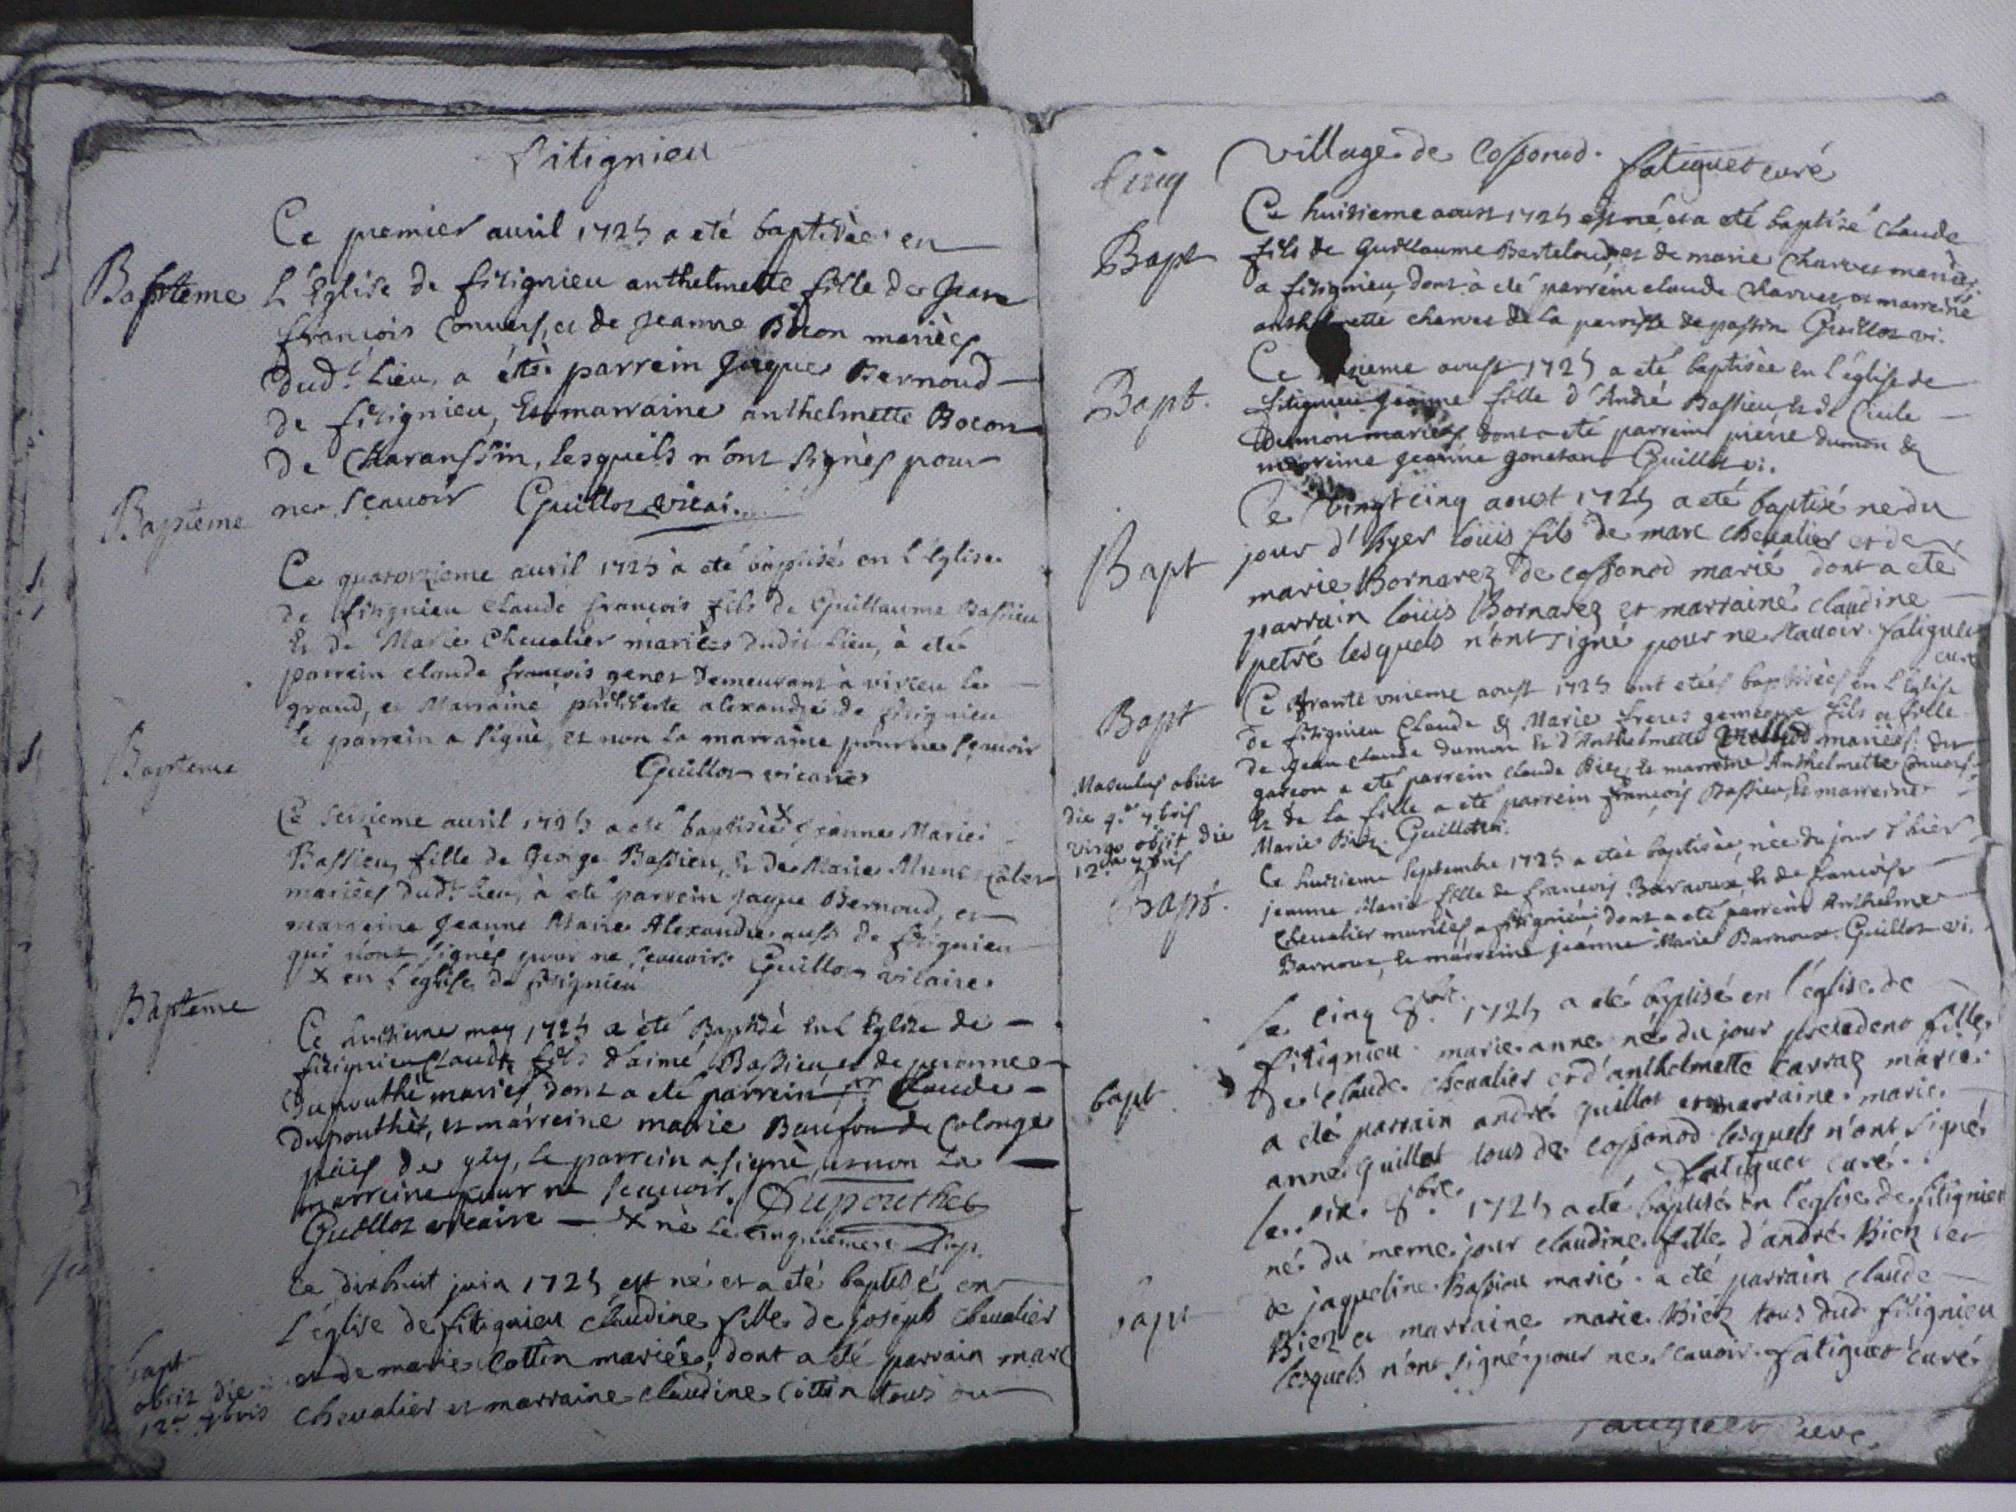 fitignieu
Baptème
Ce premier auril 1725 a eté baptisèe en
L'Eglise de fitignieu anthelmette fille de Jean
françois Convers, et de Jeanne Bocon marièes
dud.t Lieu, a étè parrein Jaques Bernoud
de fitignieu, Et marraine anthelmette Bocon
de Charanssin, lesquels n'ont signès pour
ne sçauoir Guillot vicai.
Baptème
Ce quatorzieme auril 1725 à eté baptisé en l'Eglise
de fitignieu Claude françois fils de Guillaume Bassieu
Et de Marie Cheualier marièes dudit lieu, à eté
parrein claude françois genet demeurant à virieu le
grand, et Marraine philiberte alexandre de fitignieu
le parrein a signè, et non la marraine pour ne sçauoir
Guillot vicaire
Bapteme
Ce seizieme auril 1725 a eté baptisèe x jeanne Marie
Bassieu, fille de George Bassieu, Et de Marie
marièes dud.t lieu, à eté parrein jaque Bernoud, et
marreine Jeanne Marie Alexandre aussi de fitignieu
qui n'ont signès pour ne sçauoir. Guillot vicaire
x en l'eglise de fitignieu
Bapteme
Ce huitieme may 1725 a èté Baptisè en L'Eglise de
fitignieu Claude fils d'aimé Bassieu et de peronne
Dupouthé mariés dont a eté parrein Claude
dupouthèt, et marreine marie de Colonge
païs de gey, le parrein a signè, et non la
marreine pour ne sçauoir. Dupouthet
Guillot vicaire x nè le cinquieme
Ce dixhuit juin 1725 est né et a eté baptisé en
L'église de fitignieu claudine fille de joseph Cheualier
et de marie Cottin mariés, dont a eté parrain marc
cheualier et marraine claudine cottin tous du
bapt
obiit die
12.a 7bris
Cinq
village de Cossonod. fatiguet curé
Bapt
Ce huitieme aoust 1725 est né, et a eté baptisé Claude
fils de Guillaume Berteloud, et de marie Charvet mariés
a fitignieu, dont à eté parrein claude Charvet et marreine
anthelmette charvet de la parroisse de passin Guillot vi.
Bapt.
Ce aoust 1725 a eté baptisèe en l'église de
fitignieu Jeanne fille d'André Bassieu Et de Cicile
Dumon mariés, dont a eté parrein pierre dumon &
marreine jeanne Guillot vi.
Bapt
Ce vingt cinq aoust 1725 a eté baptisé ne du
jour d'hyer loüis fils de marc cheualier et de
marie Bornarez de cossonod marié dont a eté
parrain loüis Bornarez et marraine claudine
petré lesquels n'ont signé pour ne scauoir. fatiguet
curé
Bapt
Ce trante unieme aoust 1725 ont etés baptisés en l'Eglise
de fitignieu Claude & Marie freres gemeaux fils et fille
de Jean claude dumon Et d'Anthelmette mariés, du
garçon a eté parrein claude Biez, et marreine Anthelmette Convers
Et de la fille a eté parrein françois Bassieu, Et marreine
Marie Biez. Guillot vi.
Masculus obiit
die 9.a 7bris
virgo obiit die
12.a 7bris
Bapt.
Ce huitieme Septembre 1725 a etée baptisée, née du jour d'hier
jeanne Marie fille de françois Barnoux, Et de françoise
Cheualier mariés a fitignieu dont a eté parrein Anthelme
Barnoux, Et marreine jeanne Marie Barnoux. Guillot vi.
bapt
le cinq 8.bre 1725 a eté baptisé en l'église de
fitignieu marie anne né du jour precedent fille
de claude cheualier et d'anthelmette Carraz marié
a eté parrain andré guillot et marraine marie
anne guillot tous de cossonod lesquels n'ont signé
fatiguet curé.
bapt
le six 8.bre 1725 a eté baptisé en l'église de fitignieu
né du meme jour claudine fille d'andré Biez et
de jaqueline Bassieu marié. a eté parrain claude
Biez et marraine marie Biez tous dud. fitignieu
lesquels n'ont signé pour ne scauoir. fatiguet curé
fatiguet curé.